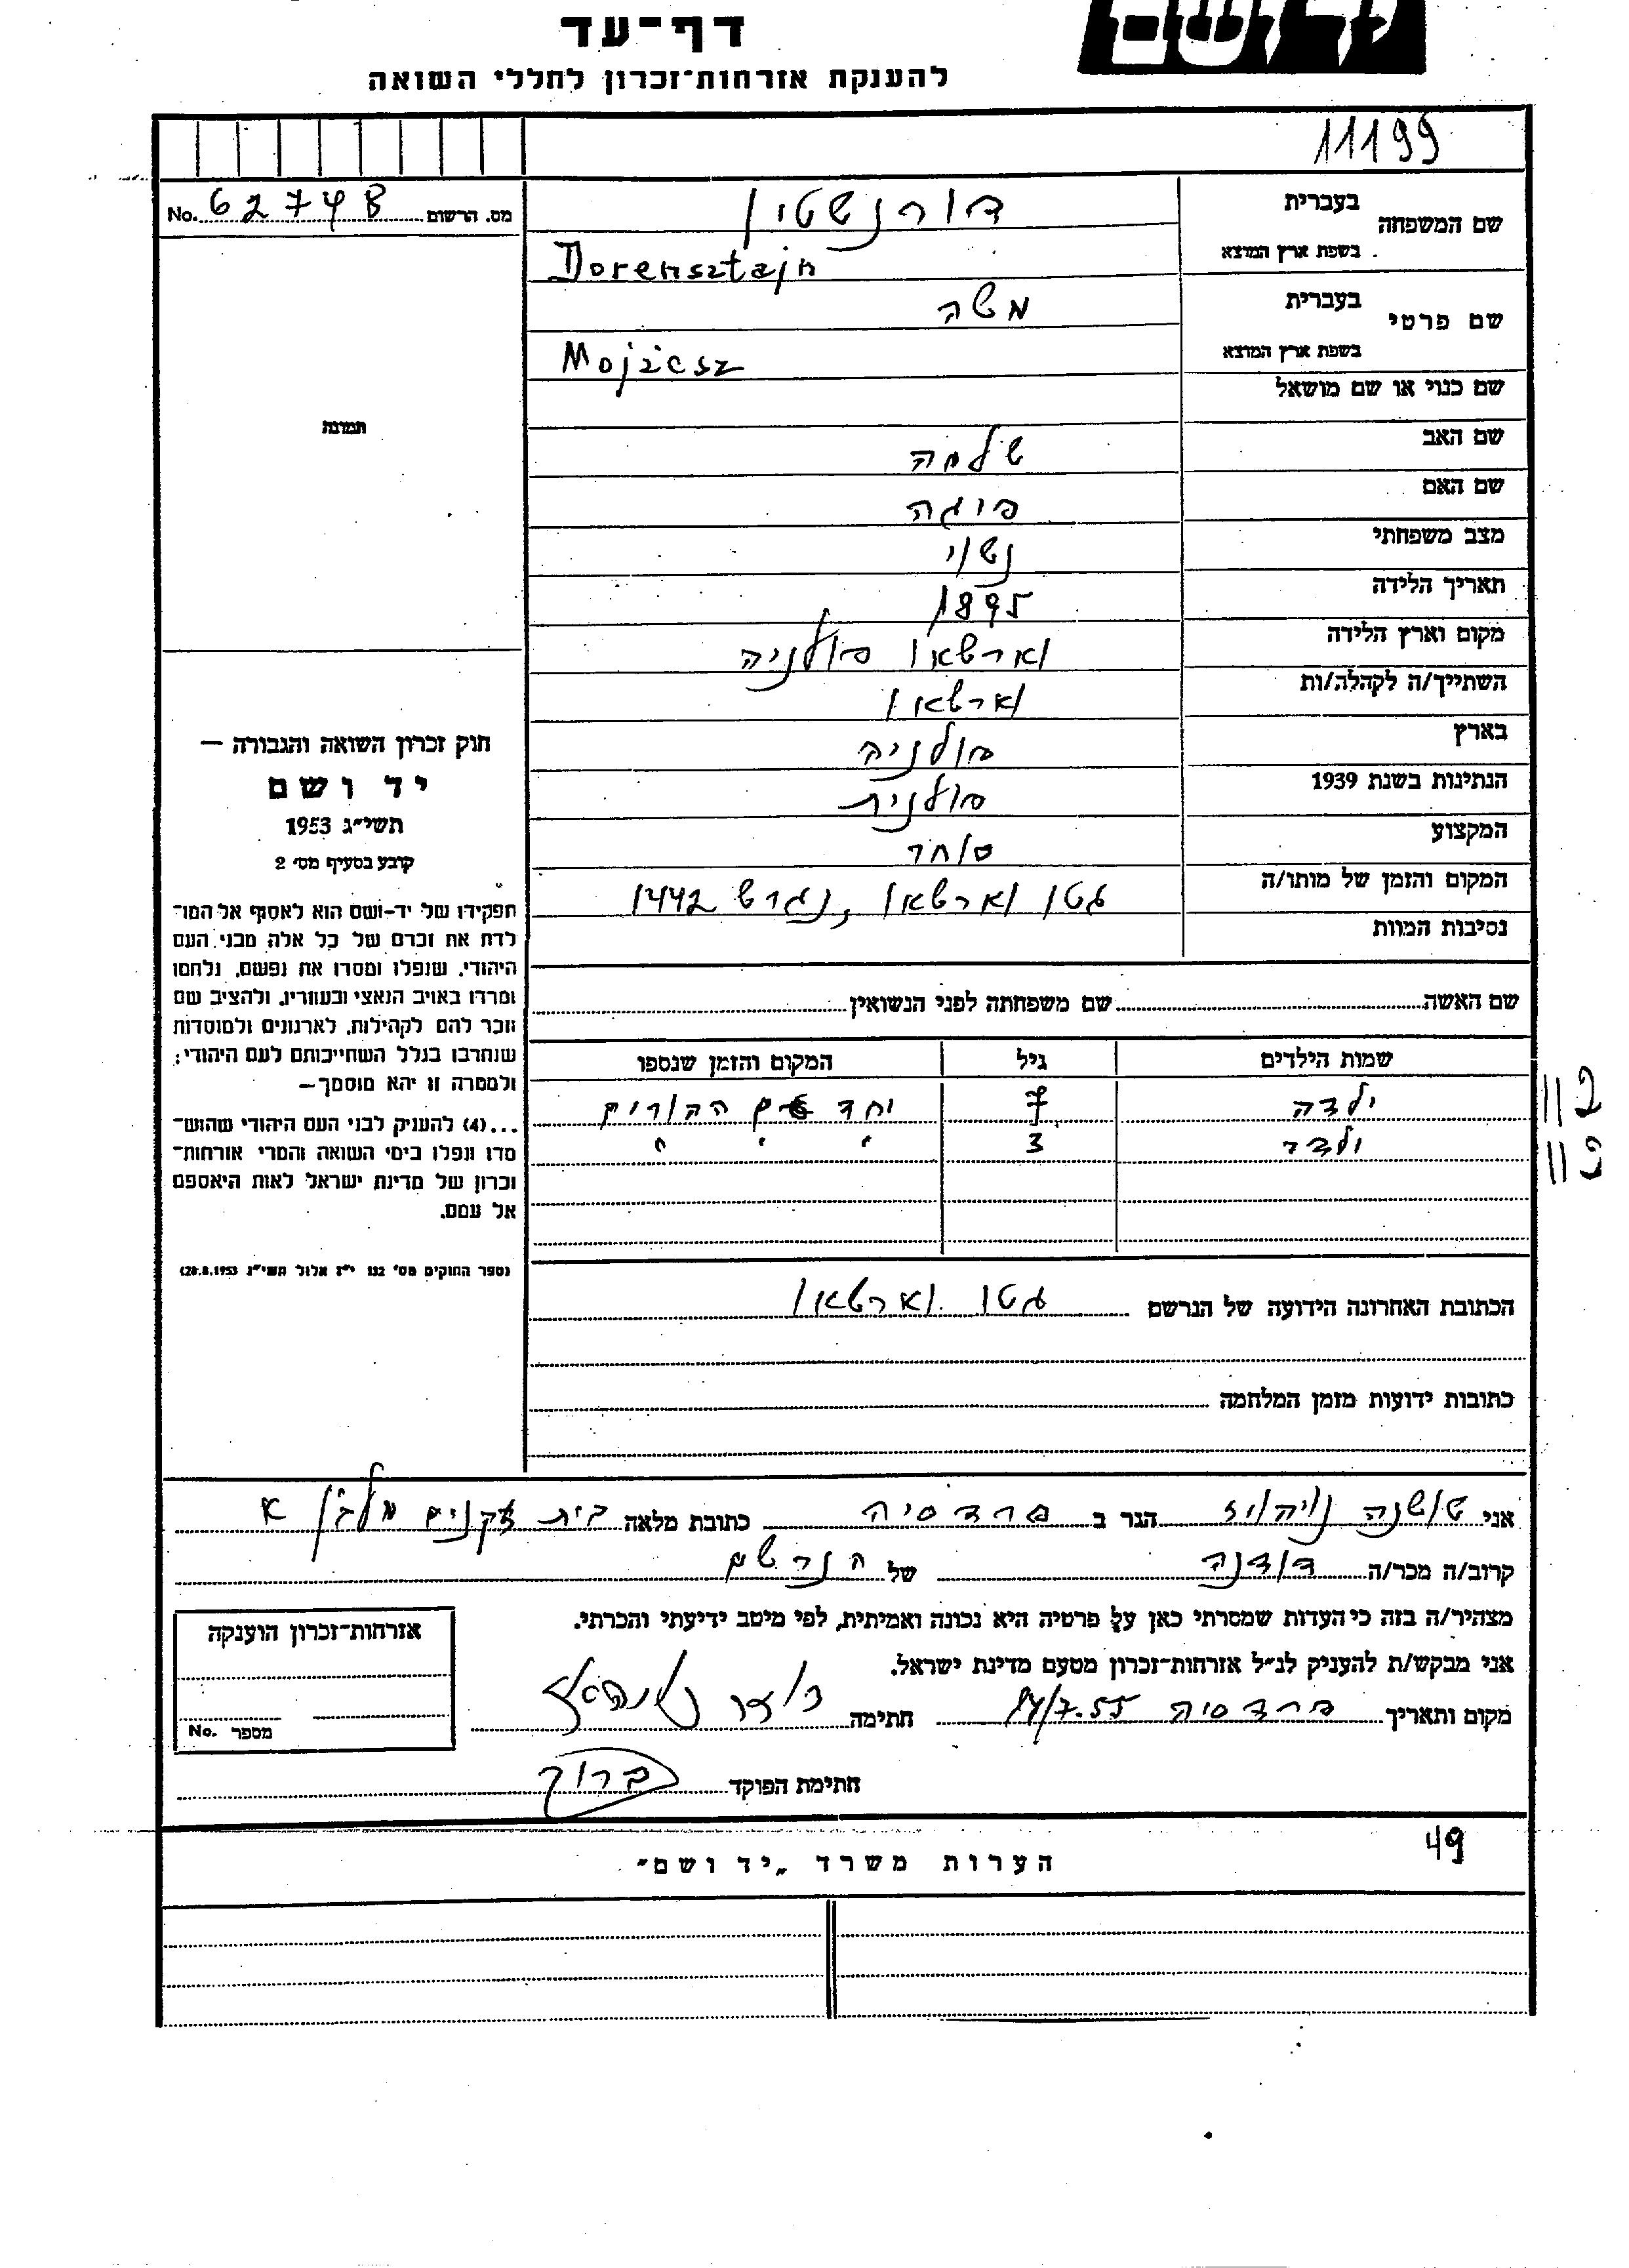 יד ושם
דף־עד
להענקת אזרחות־זכרון לחללי השואה
11199
מס. הרשום 62748 No.
שם המשפחה
בעברית דורנשטין
בשפת ארץ המוצא Dorensztajn
שם פרטי
בעברית משה
בשפת ארץ המוצא Mojżesz
שם כנוי או שם מושאל
שם האב שלמה
שם האם פיגה
מצב משפחתי נשוי
תאריך הלידה 1895
מקום וארץ הלידה וארשאו פולניה
השתייך/ה לקהלה/ות וארשאו
בארץ פולניה
הנתינות בשנת 1939 פולנית
המקצוע סוחר
המקום והזמן של מותו/ה גטו וארשאו, נגרש 1942
נסיבות המוות
שם האשה שם משפחתה לפני הנשואין
שמות הילדים גיל המקום והזמן שנספו
ילדה 7 יחד עם ההורים
ילד 3 " " "
112
113
הכתובת האחרונה הידועה של הנרשם גטו וארשאו
כתובות ידועות מזמן המלחמה
תמונה
חוק זכרון השואה והגבורה —
יד ושם
תשי״ג 1953
קובע בסעיף מס׳ 2
תפקידו של יד־ושם הוא לאסוף אל המו־
לדת את זכרם של כל אלה מבני העם
היהודי, שנפלו ומסרו את נפשם, נלחמו
ומרדו באויב הנאצי ובעוזריו, ולהציב שם
וזכר להם לקהילות, לארגונים ולמוסדות
שנחרבו בגלל השתייכותם לעם היהודי;
ולמטרה זו יהא מוסמך—
...(4) להעניק לבני העם היהודי שהוש־
מדו ונפלו בימי השואה והמרי אזרחות־
זכרון של מדינת ישראל לאות היאספם
אל עמם.
(ספר החוקים מס׳ 132 י״ז אלול תשי״ג 28.8.1953)
אני שושנה הגר ב פרדסיה כתובת מלאה בית זקנים מלבן א
קרוב/ה מכר/ה דודנה של הנרשם
מצהיר/ה בזה כי העדות שמסרתי כאן על פרטיה היא נכונה ואמיתית, לפי מיטב ידיעתי והכרתי.
אני מבקש/ת להעניק לנ״ל אזרחות־זכרון מטעם מדינת ישראל.
מקום ותאריך פרדסיה 7.55 חתימה
אזרחות־זכרון הוענקה
מספר No.
חתימת הפוקד ברוך
49
הערות משרד „יד ושם״